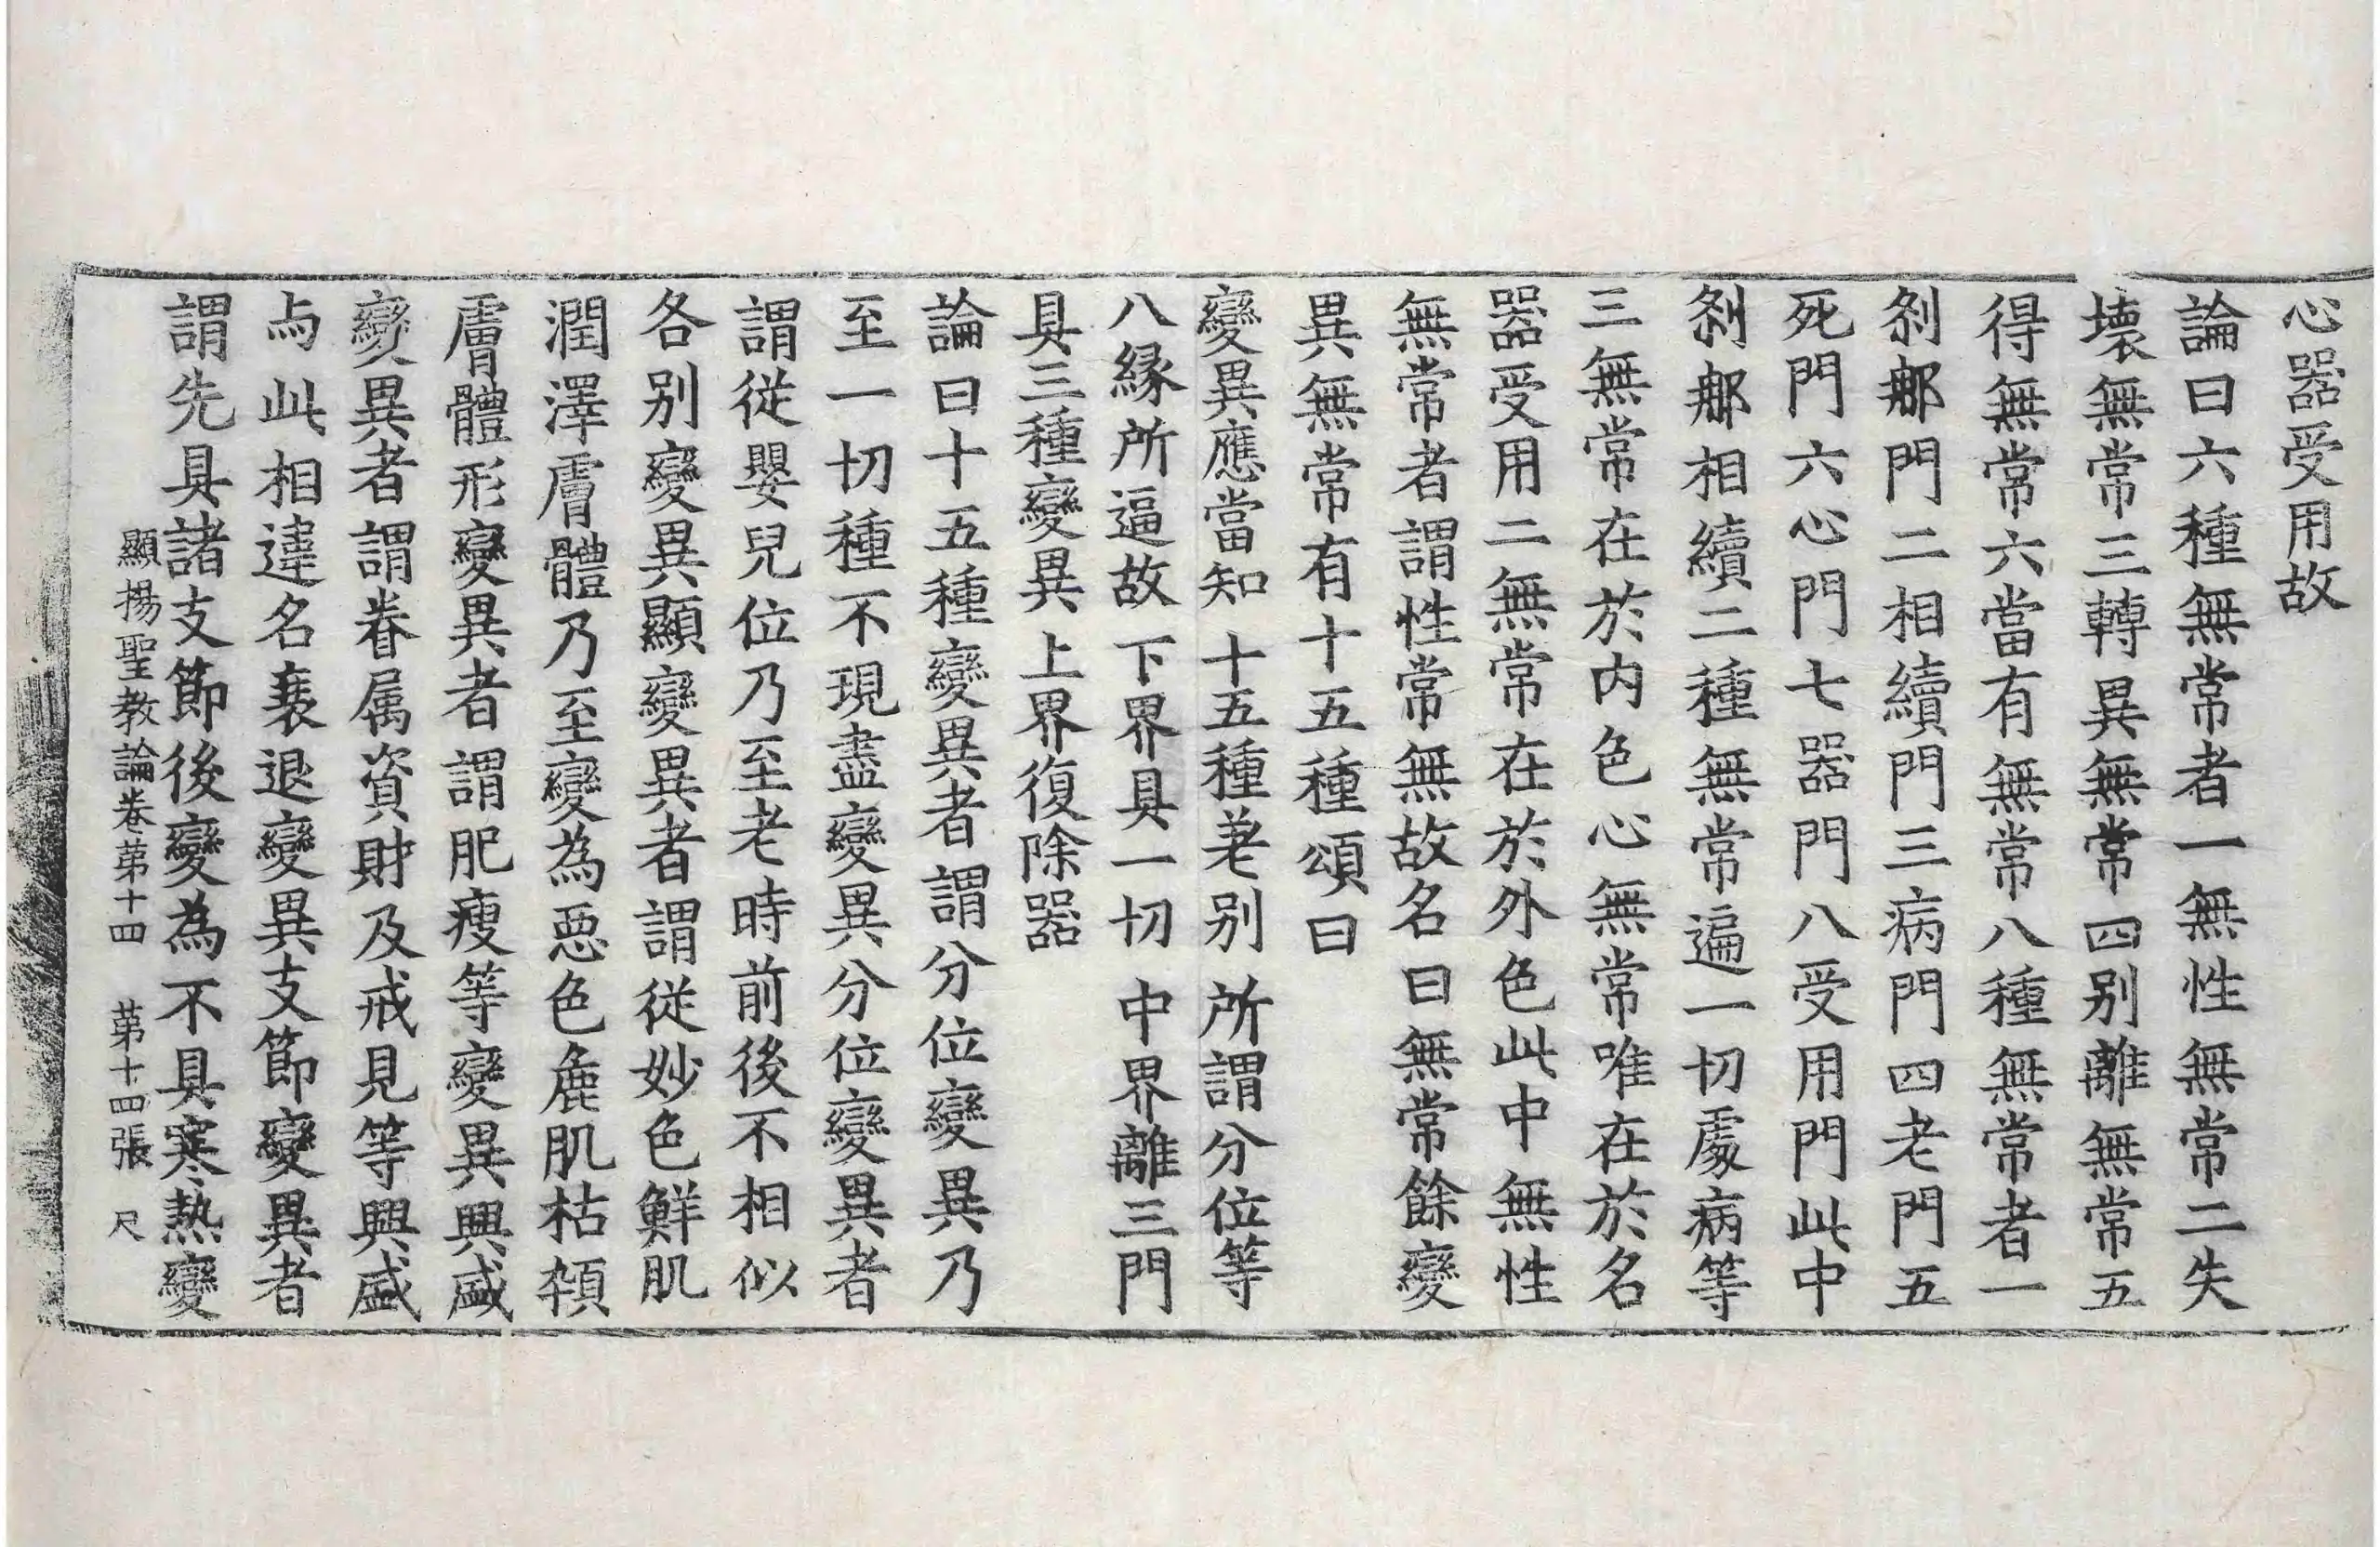 心器受用故
論曰六種無常者一無性無常二失
壞無常三轉異無常四别離無常五
得無常六當有無常八種無常者一
刹那門二相續門三病門四老門五
死門六心門七器門八受用門此中
刹那相續二種無常遍一切處病等
三無常在於内色心無常唯在於名
器受用二無常在於外色此中無性
無常者謂性常無故名曰無常餘變
異無常有十五種頌曰
變異應當知 十五種差别 所謂分位等
八緣所逼故 下界具一切 中界離三門
具三種變異 上界復除器
論曰十五種變異者謂分位變異乃
至一切種不現盡變異分位變異者
謂從嬰兒位乃至老時前後不相似
各别變異顯變異者謂從妙色鮮肌
潤澤膚體乃至變為惡色麁肌枯顇
膚體形變異者謂肥瘦等變異興盛
變異者謂眷属資財及戒見等興盛
与此相違名衰退變異支節變異者
謂先具諸支節後變為不具寒熱變
顯揚聖教論卷第十四 第十四張 尺